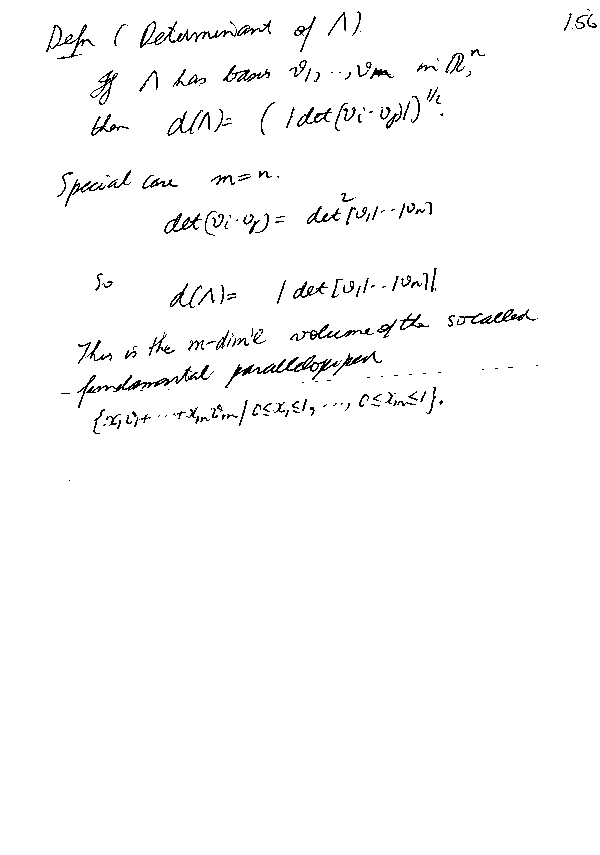 156
Defn (Determinant of Λ)
If Λ has basis v1, .., vm in ℝ^n,
then d(Λ) = (|det(vi·vj)|)^1/2.
Special case m=n.
det(vi·vj) = det^2[v1|··|vn]
So
d(Λ) = |det[v1|··|vn]|.
This is the m-dim'l volume of the so called
fundamental parallelopiped
{x1v1+··+xmvm | 0≤x1≤1, ..., 0≤xm≤1}.